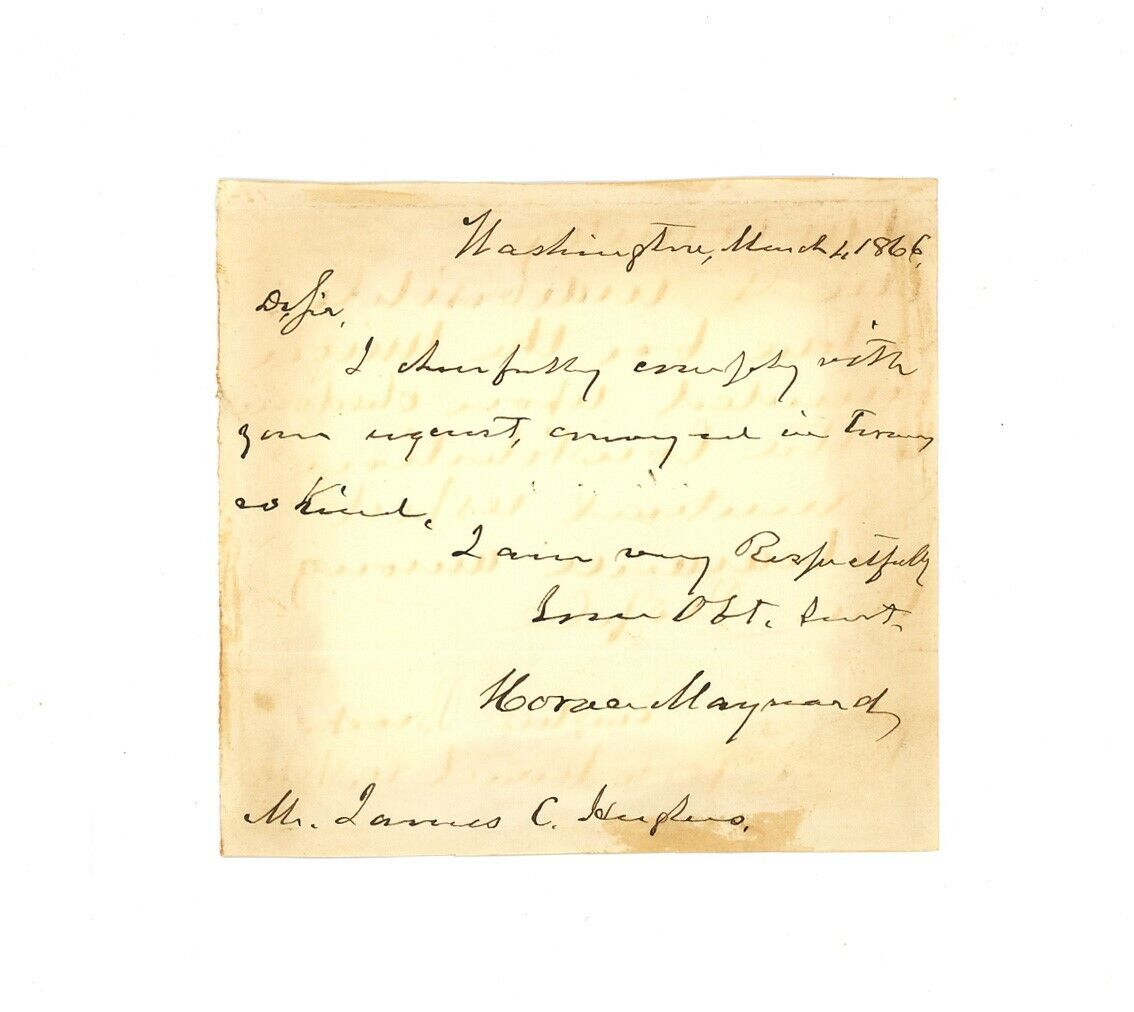 Washington, March 4, 1866.
Dr. Sir,
I cheerfully comply with
your request, conveyed in terms
so kind.
I am very Respectfully
Your Obt. Servt.
Horace Maynard
Mr. James C. Hughes.